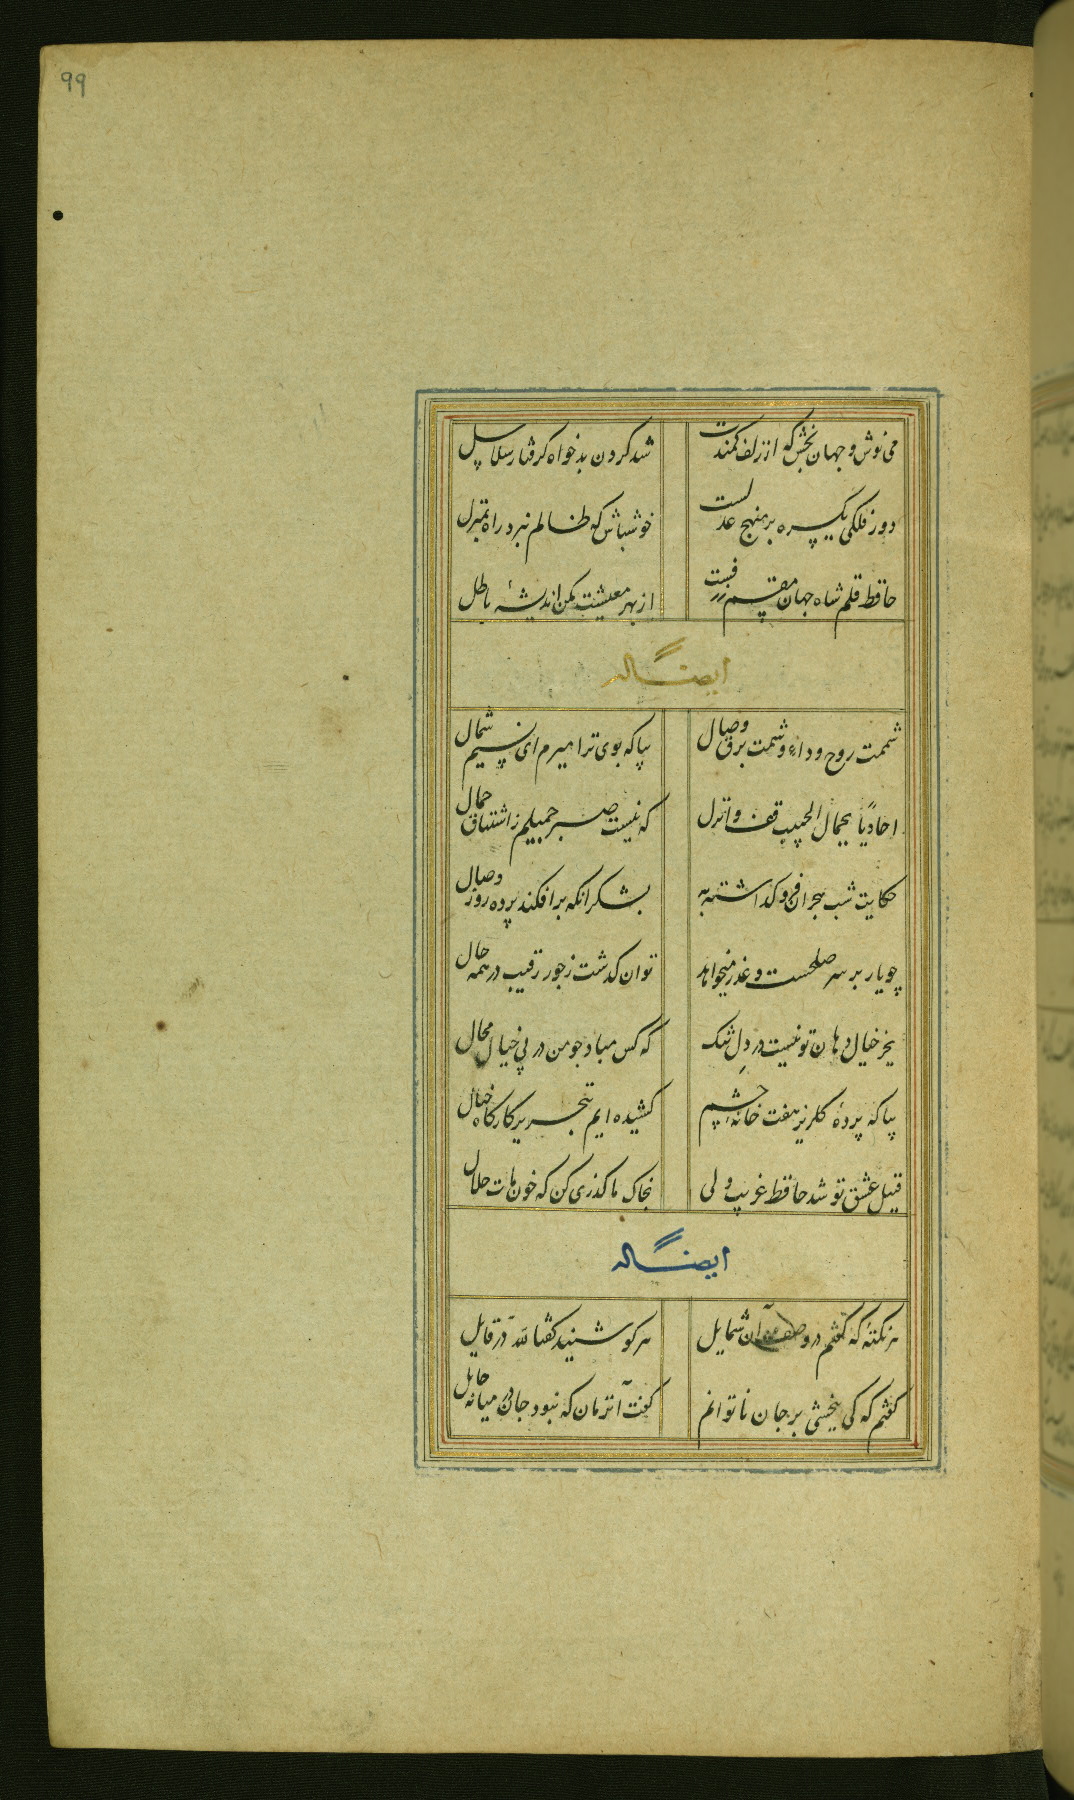 99
می نوش و جهان بخش که از زلف کمندت شد گردن بدخواه گرفتار سلاسل
دور فلکی یکسره بر منهج عدلست خوشباش که ظالم نبرد راه بمنزل
حافظ قلم شاه جهان مقسم رزقست از بهر معیشت مکن اندیشهٔ باطل
ایضاً له
شممت روح وداد و شمت برق وصال بیا که بوی ترا میرم ای نسیم شمال
احادیاً بجمال الحبیب قف وانزل که نیست صبر جمیلم ز اشتیاق جمال
حکایت شب هجران فرو گذاشته به بشکر آنکه برافکند پرده روز وصال
چو یار بر سر صلحست و عذر میخواهد توان گذشت ز جور رقیب در همه حال
بجز خیال دهان تو نیست در دل تنگ که کس مباد چو من در پی خیال محال
بیا که پردهٔ گلریز هفت خانه چشم کشیده ایم بتحریر کارگاه خیال
قتیل عشق تو شد حافظ غریب ولی بخاک ما گذری کن که خون مات حلال
ایضاً له
هر نکتهٔ که گفتم در وصف آن شمایل هر کو شنید گفتا لله در قایل
گفتم که کی ببخشی بر جان ناتوانم گفت آنزمان که نبود جان در میانه حایل